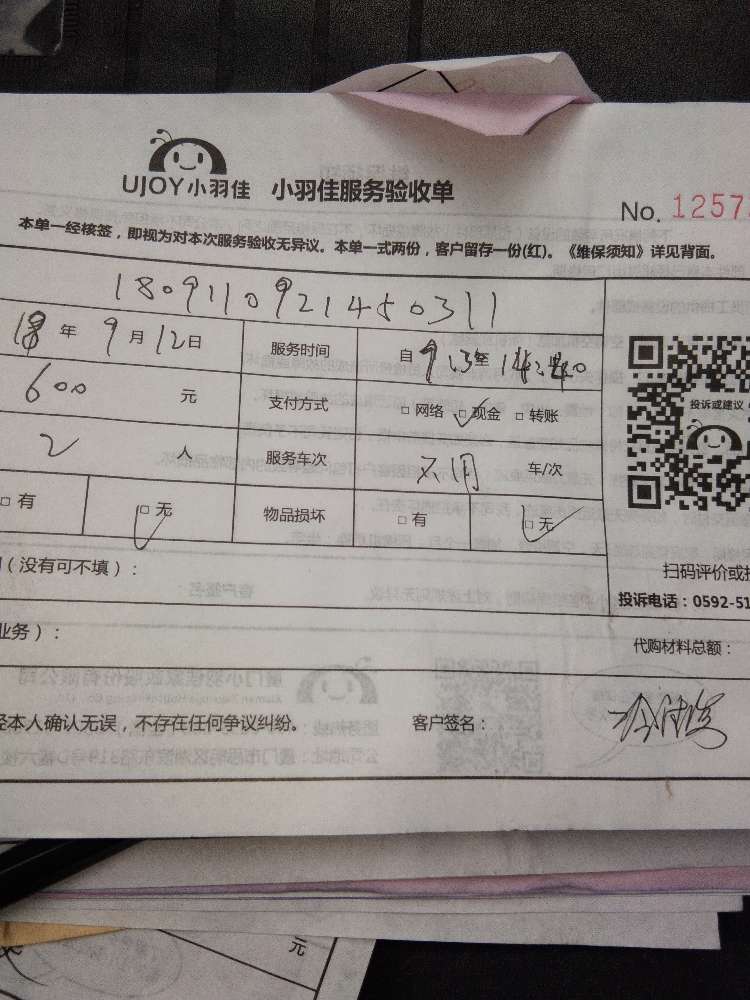 UJOY小羽佳 小羽佳服务验收单
No. 1257
本单一经核签，即视为对本次服务验收无异议。本单一式两份，客户留存一份(红)。《维保须知》详见背面。
1809110921450311
18 年 9 月 12 日 服务时间 自 至
600 元 支付方式 □ 网络 □ 现金 □ 转账
投诉或建议
2 人 服务车次 车/次
□ 有 □ 无 物品损坏 □ 有 □ 无
（没有可不填）：
扫码评价或
投诉电话：0592-51
业务）：
代购材料总额：
经本人确认无误，不存在任何争议纠纷。 客户签名：
元